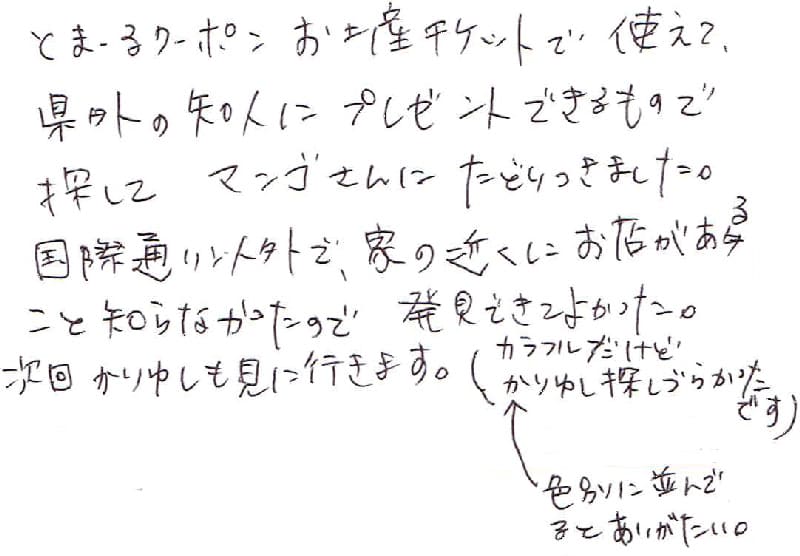 とまーるクーポン お土産チケットで 使えて、
県外の知人に プレゼントできるもので
探して マンゴさんに たどりつきました。
国際通り以外で、家の近くに お店がある
こと知らなかったので 発見できてよかった。
次回 かりゆしも見に行きます。
(カラフルだけど
かりゆし探しづらかった
です)
色別に並んで
ると ありがたい。